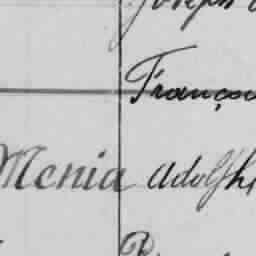 Joseph
Françoi
Menia Adolphe